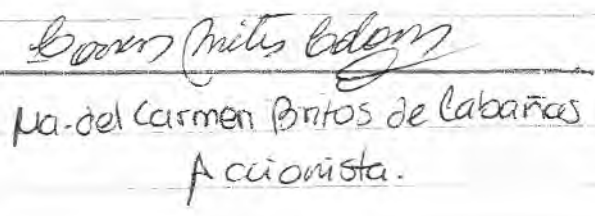 Ma. del Carmen Britos de Cabañas
Accionista.